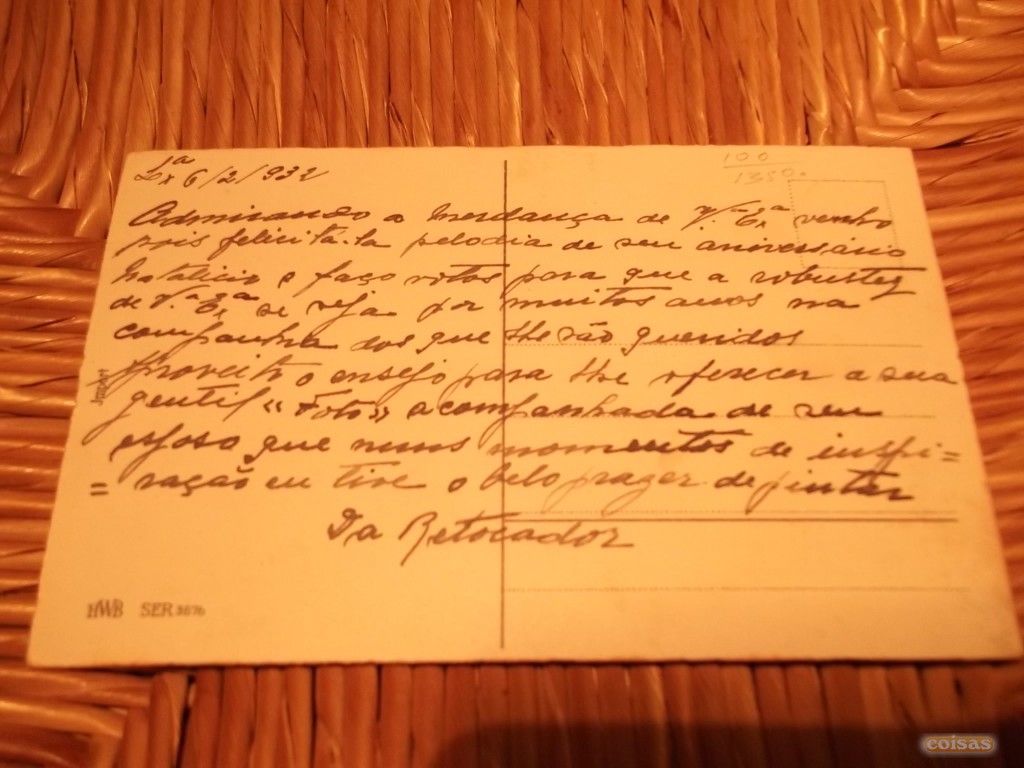 Lxª 6/2/932
100
1350.
Admirando a mendança de V.ª Ex.ª venho
pois felicitá-la pelo dia de seu aniversário
natalicio e faço votos para que a robustez
de V.ª Ex.ª se veja por muitos anos na
companhia dos que lhe são queridos
Aproveito o ensejo para lhe oferecer a sua
gentil «Foto» acompanhada de seu
esposo que nuns momentos de inspi=
=ração eu tive o belo prazer de pintar
Da Retocador
HWB SER 3676
coisas